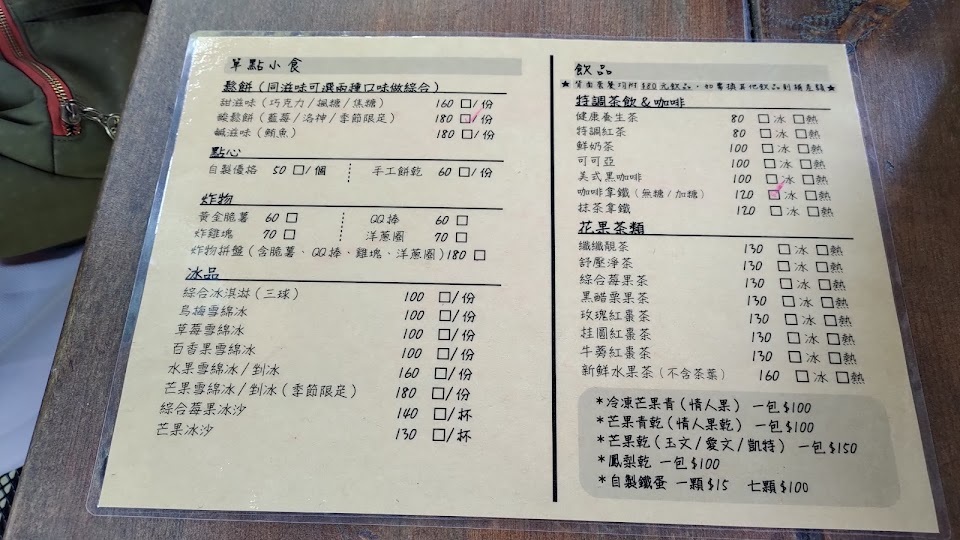 單點小食
鬆餅(同滋味可選兩種口味做綜合)
甜滋味(巧克力/楓糖/焦糖) 160 □/份
酸鬆餅(藍莓/洛神/季節限定) 180 □/份
鹹滋味(鮪魚) 180 □/份
點心
自製優格 50 □/個 手工餅乾 60 □/份
炸物
黃金脆薯 60 □ QQ捧 60 □
炸雞塊 70 □ 洋蔥圈 70 □
炸物拼盤(含脆薯、QQ捧、雞塊、洋蔥圈)180 □
冰品
綜合冰淇淋(三球) 100 □/份
烏梅雪綿冰 100 □/份
草莓雪綿冰 100 □/份
百香果雪綿冰 100 □/份
水果雪綿冰/剉冰 160 □/份
芒果雪綿冰/剉冰(季節限定) 180 □/份
綜合莓果冰沙 140 □/杯
芒果冰沙 130 □/杯
飲品
★背面套餐均附$80元飲品,如需換其他飲品則補差額★
特調茶飲&咖啡
健康養生茶 80 □冰 □熱
特調紅茶 80 □冰 □熱
鮮奶茶 100 □冰 □熱
可可亞 100 □冰 □熱
美式黑咖啡 100 □冰 □熱
咖啡拿鐵(無糖/加糖) 120 □冰 □熱
抹茶拿鐵 120 □冰 □熱
花果茶類
纖纖靚茶 130 □冰 □熱
舒壓淨茶 130 □冰 □熱
綜合莓果茶 130 □冰 □熱
黑醋栗果茶 130 □冰 □熱
玫瑰紅棗茶 130 □冰 □熱
桂圓紅棗茶 130 □冰 □熱
牛蒡紅棗茶 130 □冰 □熱
新鮮水果茶(不含茶葉) 160 □冰 □熱
*冷凍芒果青(情人果) 一包$100
*芒果青乾(情人果乾) 一包$100
*芒果乾(玉文/愛文/凱特) 一包$150
*鳳梨乾 一包$100
*自製鐵蛋 一顆$15 七顆$100